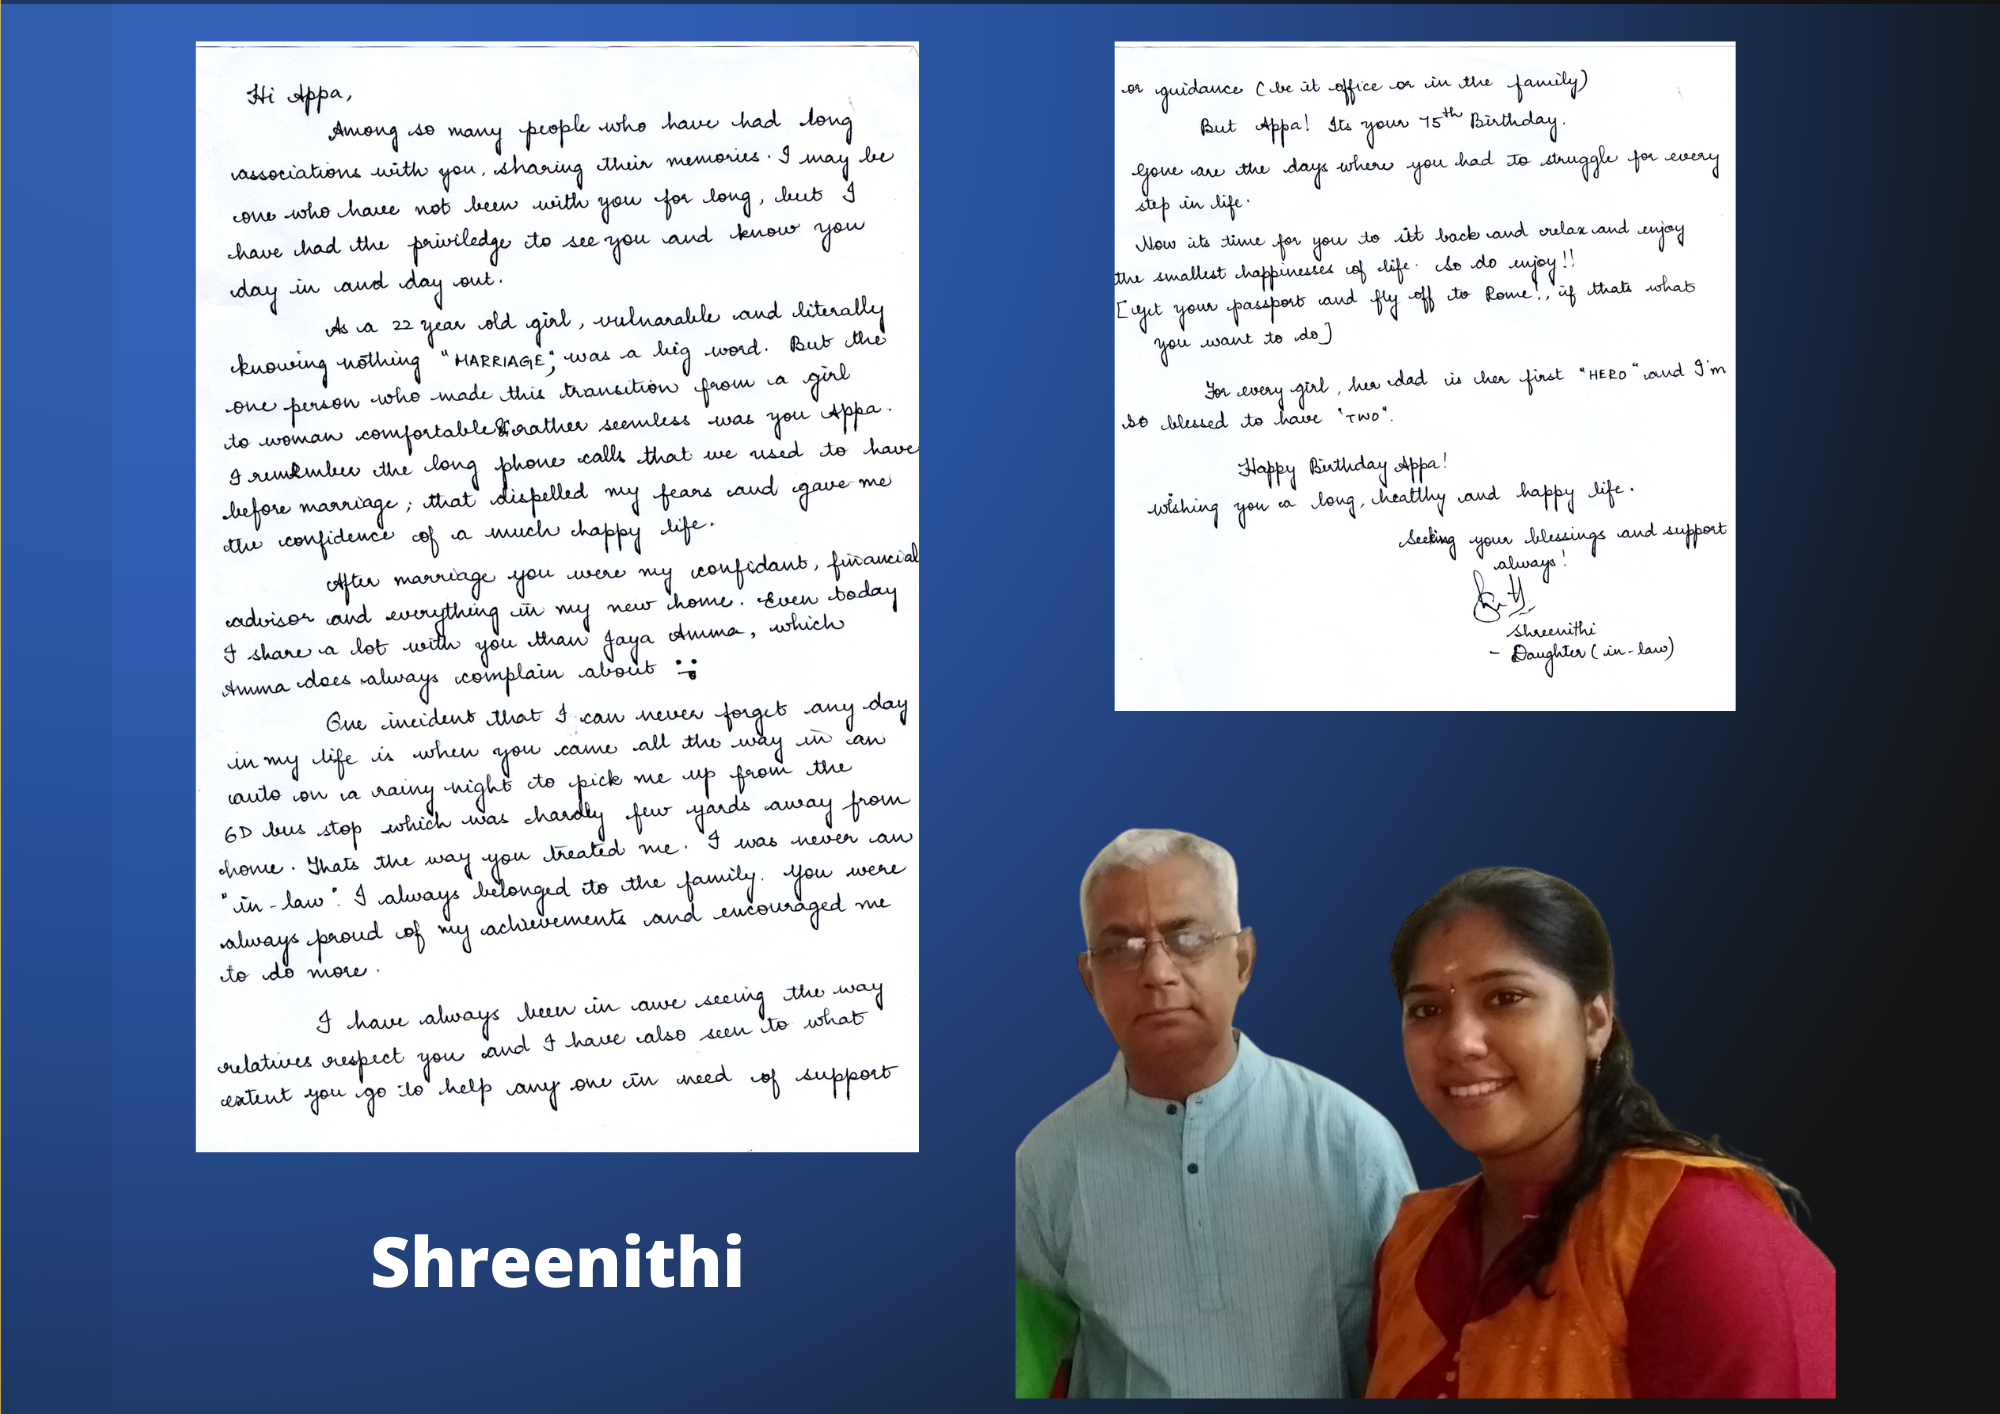 Hi Appa,
Among so many people who have had long
associations with you, sharing their memories. I may be
one who have not been with you for long, but I
have had the priviledge to see you and know you
day in and day out.
As a 22 year old girl, vulnarable and literally
knowing nothing "MARRIAGE", was a big word. But the
one person who made this transition from a girl
to woman comfortable & rather seemless was you Appa.
I remember the long phone calls that we used to have
before marriage; that dispelled my fears and gave me
the confidence of a much happy life.
After marriage you were my confidant, financial
advisor and everything in my new home. Even today
I share a lot with you than Jaya Amma, which
Amma does always complain about
One incident that I can never forget any day
in my life is when you came all the way in an
auto on a rainy night to pick me up from the
6D bus stop which was hardly few yards away from
home. Thats the way you treated me. I was never an
"in-law". I always belonged to the family. You were
always proud of my achievements and encouraged me
to do more.
I have always been in awe seeing the way
relatives respect you and I have also seen to what
extent you go to help any one in need of support
or guidance (be it office or in the family)
But Appa! Its your 75th Birthday.
Gone are the days where you had to struggle for every
step in life.
Now its time for you to sit back and relax and enjoy
the smallest happinesses of life. So do enjoy!!
[Get your passport and fly off to Rome!, if thats what
you want to do]
For every girl, her dad is her first "HERO" and I'm
so blessed to have "TWO".
Happy Birthday Appa!
Wishing you a long, healthy and happy life.
Seeking your blessings and support
always!
Shreenithi
- Daughter (in-law)
Shreenithi